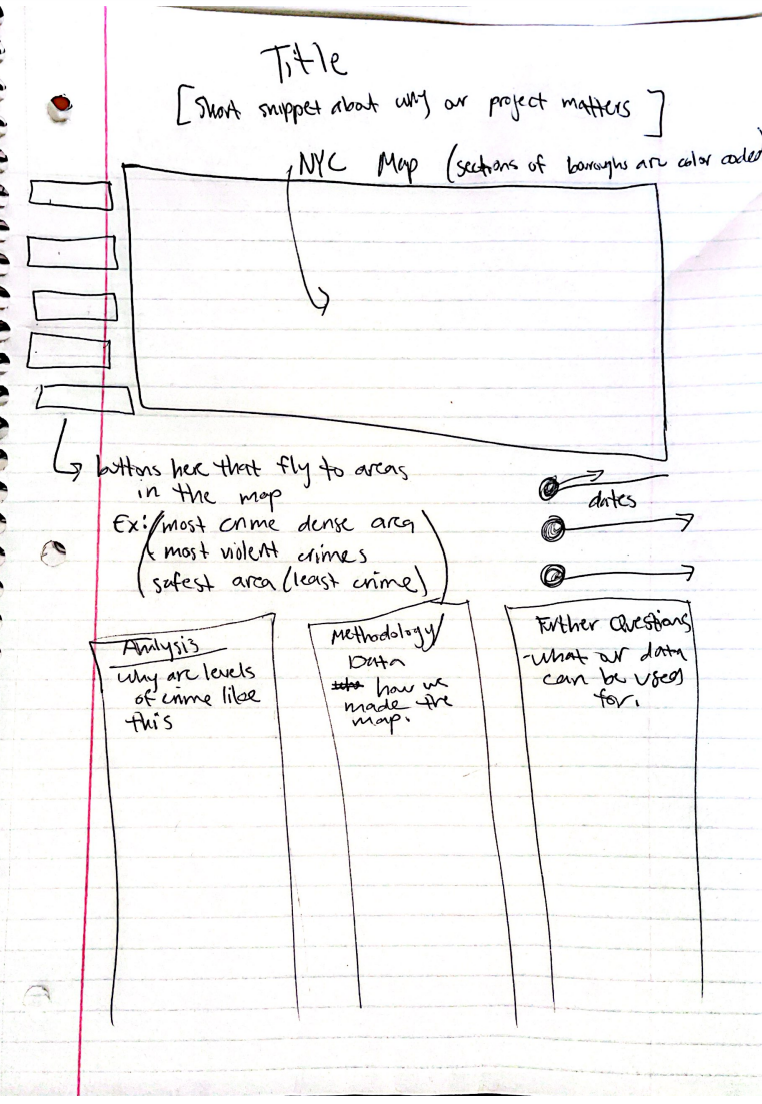 Title
[Short snippet about why our project matters]
NYC Map (sections of boroughs are color coded
buttons here that fly to areas
in the map
Ex: (most crime dense area
most violent crimes
safest area (least crime))
dates
Analysis
why are levels
of crime like
this
Methodology/
Data
how we
made the
map.
Further Questions
-what our data
can be used
for.